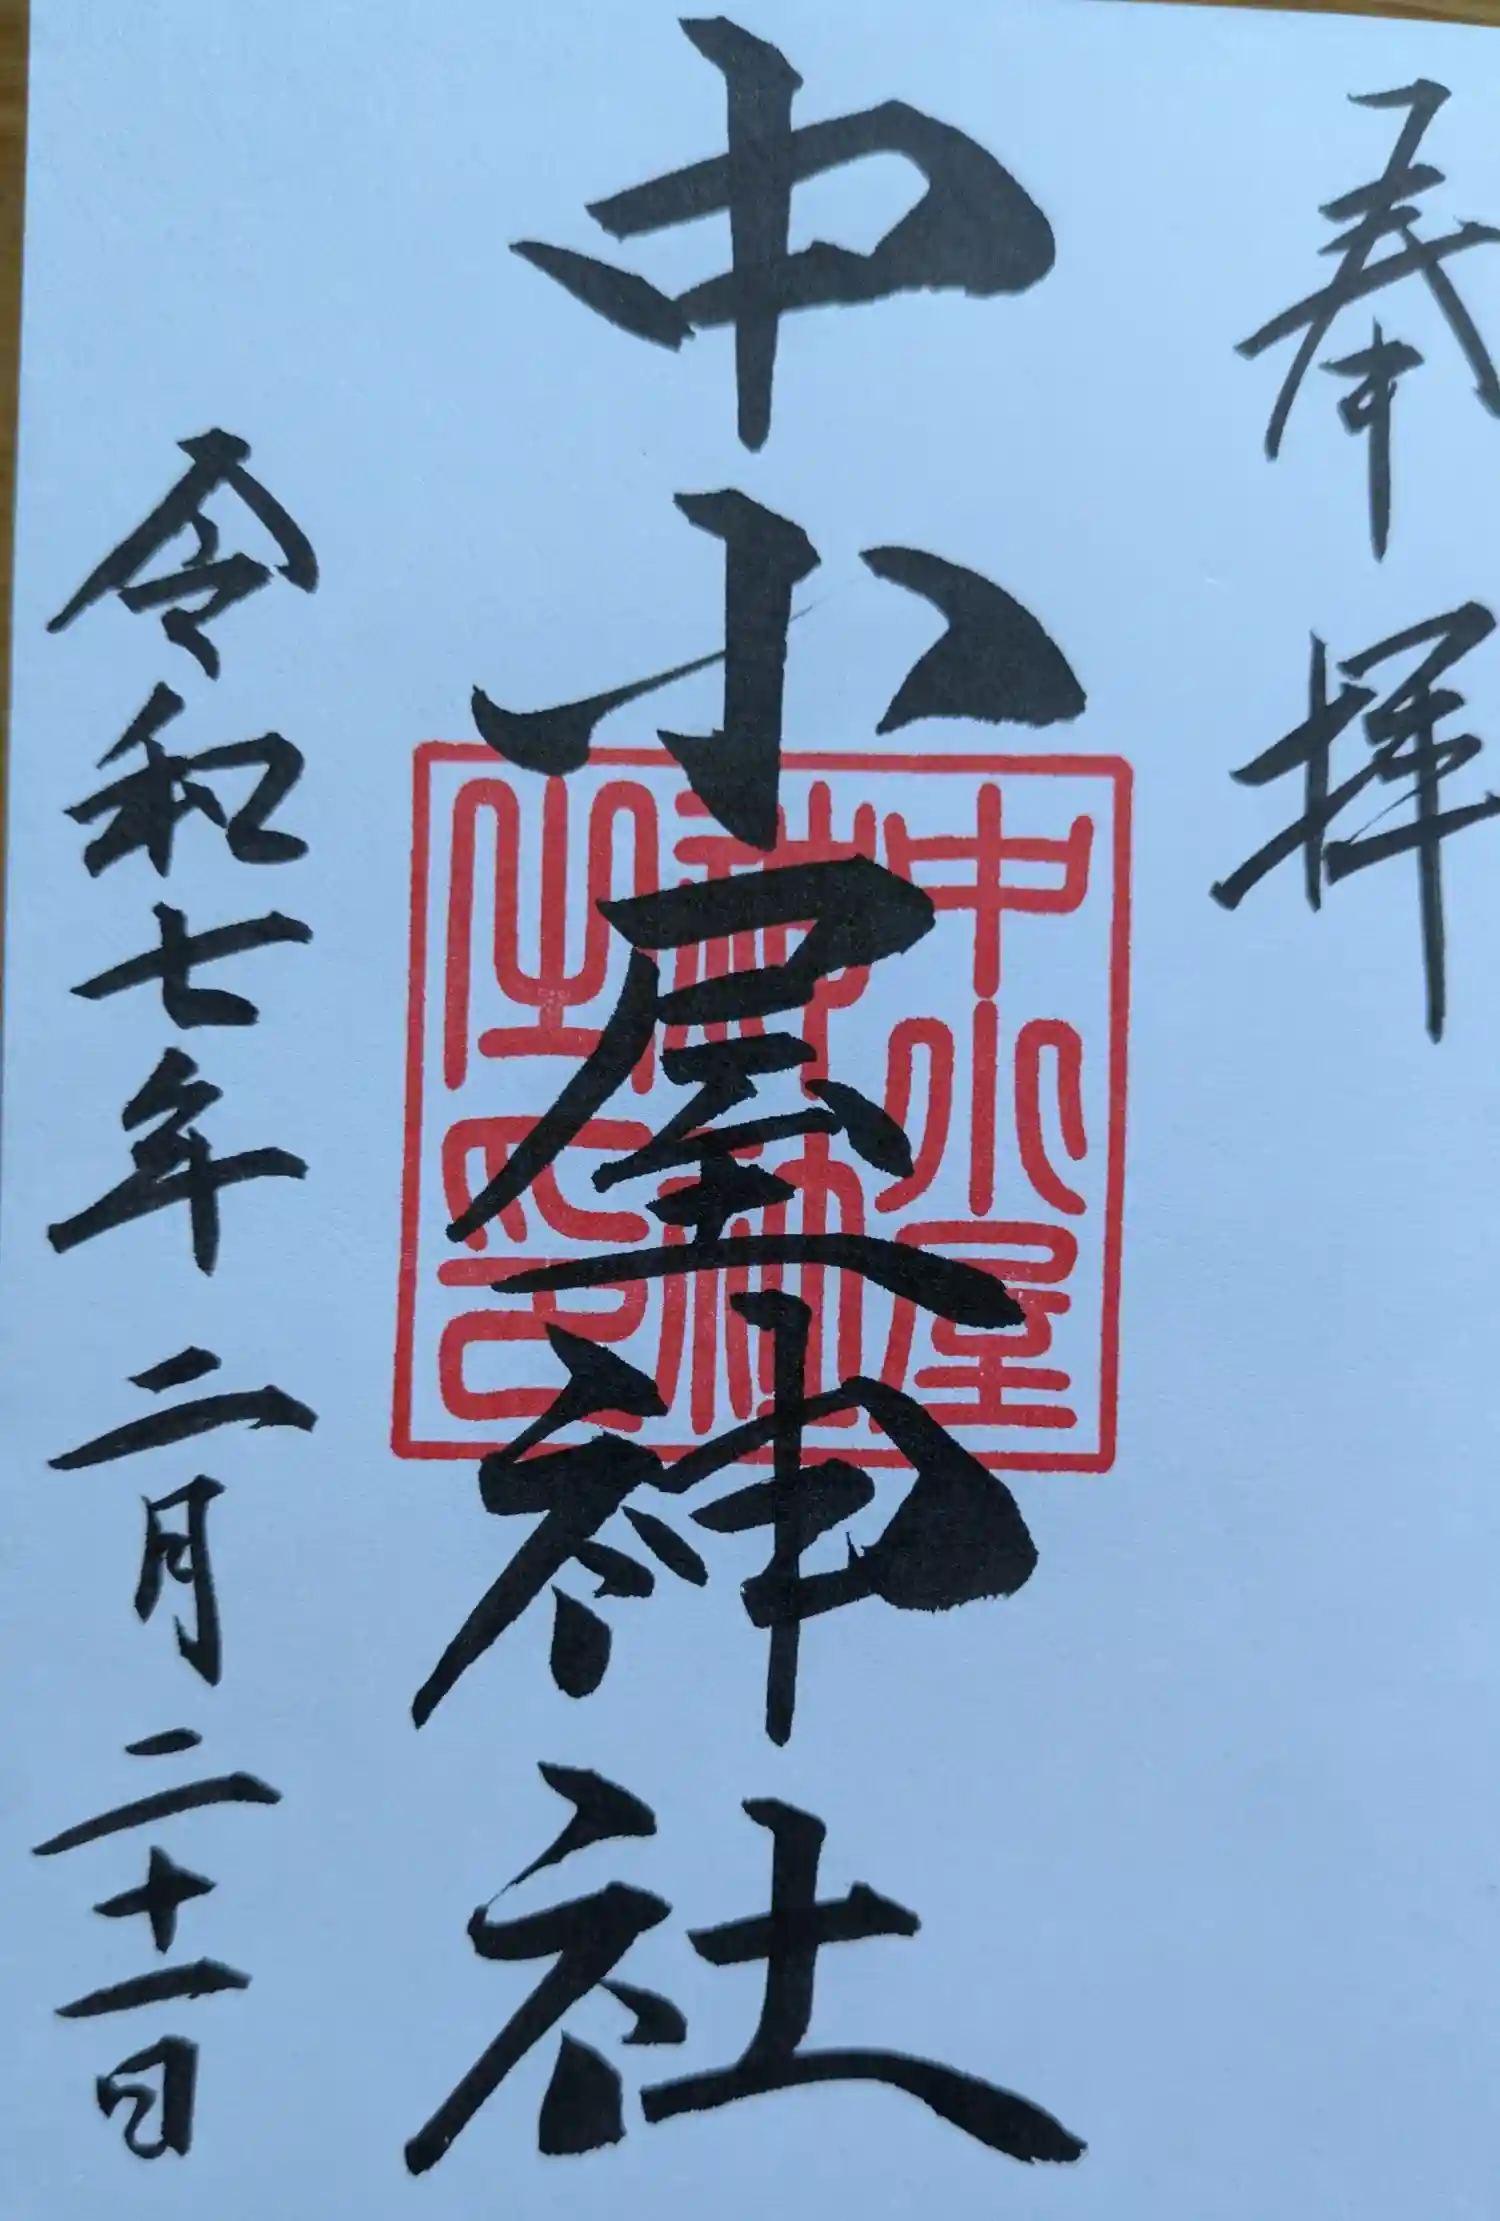 奉拝
中小屋神社
中小屋
神社
之印
令和七年二月二十一日